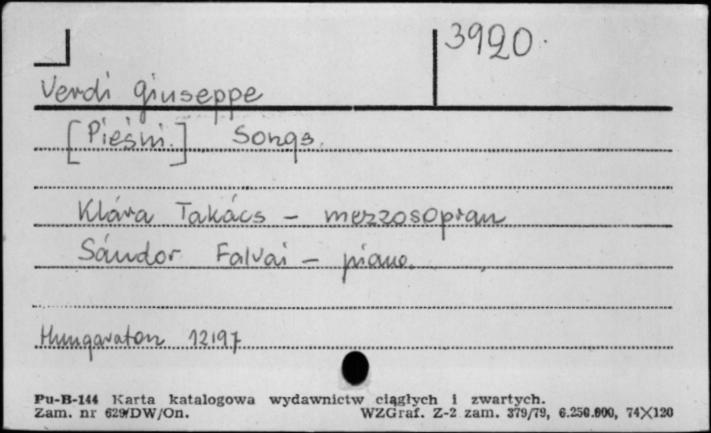 3920.
Verdi Giuseppe
[Pieśni.] Songs.
Klára Takács – mezzosopran
Sándor Falvai – piano.
Hungaraton 12197
Pu-B-144 Karta katalogowa wydawnictw ciągłych i zwartych.
Zam. nr 629/DW/On. WZGraf. Z-2 zam. 379/79, 6.250.000, 74X120